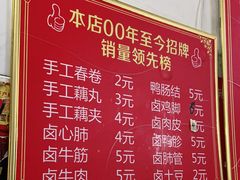 本店00年至今招牌
销量领先榜
手工春卷 2元 鸭肠结 5元
手工藕丸 3元 卤鸡脚
手工藕夹 3元 卤肉皮
卤心肺 4元 卤鸭胗 5元
卤牛筋 5元 卤肺管 5元
卤牛肉 5元 卤土豆 2元